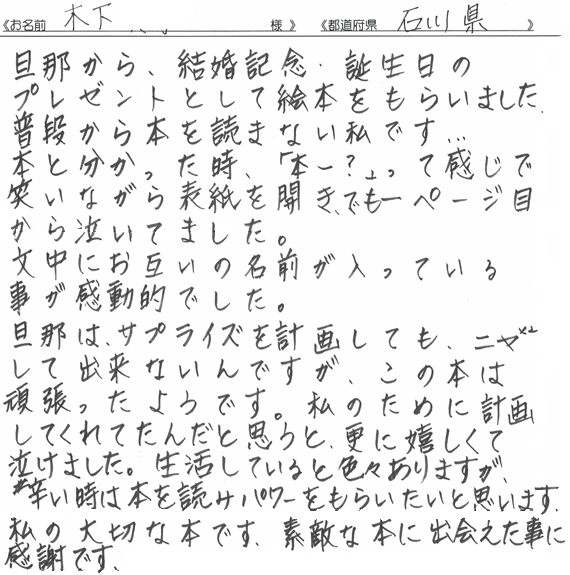 《お名前 木下 様》 《都道府県 石川県 》
旦那から、結婚記念・誕生日の
プレゼントとして絵本をもらいました。
普段から本を読まない私です…
本と分かった時、「本ー?」って感じで
笑いながら表紙を開き、でも一ページ目
から泣いてました。
文中にお互いの名前が入っている
事が感動的でした。
旦那は、サプライズを計画しても、ニヤニヤ
して出来ないんですが、この本は
頑張ったようです。私のために計画
してくれてたんだと思うと、更に嬉しくて
泣けました。生活していると色々ありますが、
辛い時は本を読みパワーをもらいたいと思います。
私の大切な本です、素敵な本に出会えた事に
感謝です、